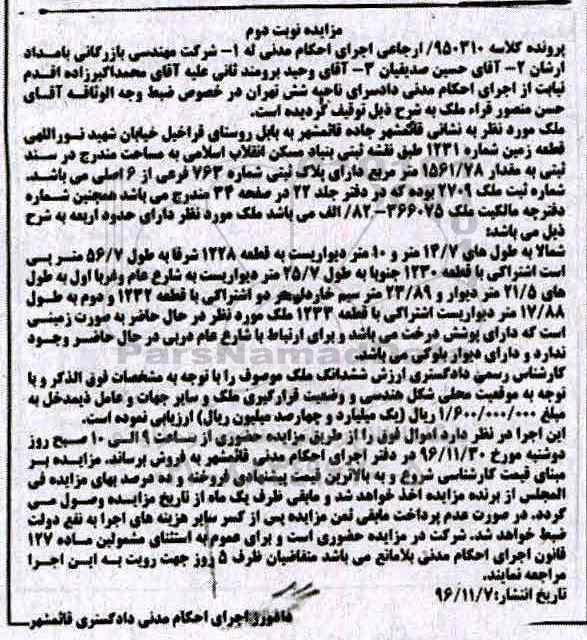 مزایده نوبت دوم
پرونده کلاسه ۹۵۰۳۱۰/ ارجاعی اجرای احکام مدنی له ۱- شرکت مهندسی بازرگانی بامداد
ارشان ۲- آقای حسین صدیقیان ۳- آقای وحید برومند ثانی علیه آقای محمداکبرزاده اقدم
نیابت از اجرای احکام مدنی دادسرای ناحیه شش تهران در خصوص ضبط وجه الوثاقه آقای
حسن منصور قراء ملک به شرح ذیل توقیف گردیده است.
ملک مورد نظر به نشانی قائمشهر جاده قائمشهر به بابل روستای قراخیل خیابان شهید نوراللهی
قطعه زمین شماره ۱۲۳۱ طبق نقشه ثبتی بنیاد مسکن انقلاب اسلامی به مساحت مندرج در سند
ثبتی به مقدار ۱۵۶۱/۷۸ متر مربع دارای پلاک ثبتی شماره ۷۶۳ فرعی از ۶ اصلی می باشد.
شماره ثبت ملک ۲۷۰۹ بوده که در دفتر جلد ۲۲ در صفحه ۳۴ مندرج می باشد همچنین شماره
دفترچه مالکیت ملک ۳۶۶۰۷۵-۸۲/ الف می باشد ملک مورد نظر دارای حدود اربعه به شرح
ذیل می باشد:
شمالا به طول های ۱۴/۷ متر و ۱۰ متر دیواریست به قطعه ۱۲۲۸ شرقا به طول ۵۶/۷ متر پی
است اشتراکی با قطعه ۱۲۳۰ جنوبا به طول ۲۵/۷ متر دیواریست به شارع عام وغربا اول به طول
های ۲۱/۵ متر دیوار و ۲۳/۸۹ متر سیم خاردار هر دو اشتراکی با قطعه ۱۲۳۲ و دوم به طول
۱۷/۸۸ متر دیواریست اشتراکی با قطعه ۱۲۳۳ ملک مورد نظر در حال حاضر به صورت زمینی
است که دارای پوشش درخت می باشد و برای ارتباط با شارع عام دربی در حال حاضر وجود
ندارد و دارای دیوار بلوکی می باشد.
کارشناس رسمی دادگستری ارزش ششدانگ ملک موصوف را با توجه به مشخصات فوق الذکر و با
توجه به موقعیت محلی شکل هندسی و وضعیت قرارگیری ملک و سایر جهات و عامل ذیمدخل به
مبلغ ۱/۶۰۰/۰۰۰/۰۰۰ ریال (یک میلیارد و چهارصد میلیون ریال) ارزیابی نموده است.
این اجرا در نظر دارد اموال فوق را از طریق مزایده حضوری از ساعت ۹ الی ۱۰ صبح روز
دوشنبه مورخ ۹۶/۱۱/۳۰ در دفتر اجرای احکام مدنی قائمشهر به فروش برساند. مزایده بر
مبنای قیمت کارشناسی شروع و به بالاترین قیمت پیشنهادی فروخته و ده درصد بهای مزایده فی
المجلس از برنده مزایده اخذ خواهد شد و مابقی ظرف یک ماه از تاریخ مزایده وصول می
گردد. در صورت عدم پرداخت مابقی ثمن مزایده پس از کسر سایر هزینه های اجرا به نفع دولت
ضبط خواهد شد. شرکت در مزایده حضوری است و برای عموم به استثنای مشمولین ماده ۱۲۷
قانون اجرای احکام مدنی بلامانع می باشد متقاضیان ظرف ۵ روز جهت رویت به این اجرا
مراجعه نمایند.
تاریخ انتشار: ۹۶/۱۱/۷
دادورز اجرای احکام مدنی دادگستری قائمشهر
ParsNamad